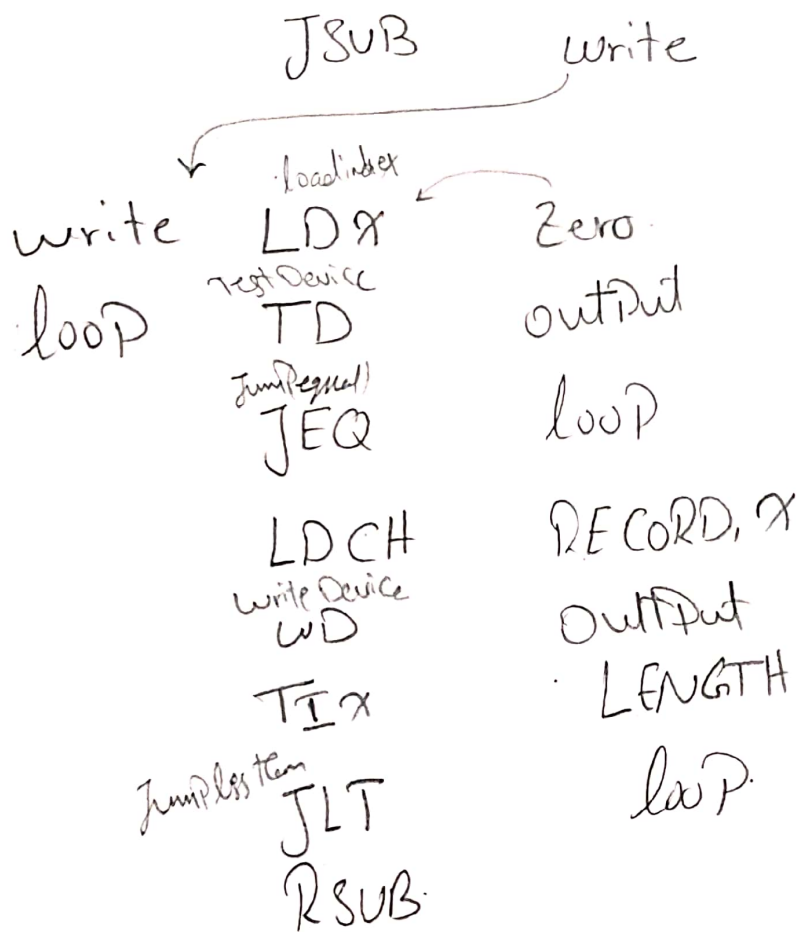 JSUB write
loadindex
write LDX Zero
Test Device
loop TD output
Jump equal
JEQ loop
LDCH RECORD, X
write Device
WD output
TIX LENGTH
Jump less than
JLT loop
RSUB